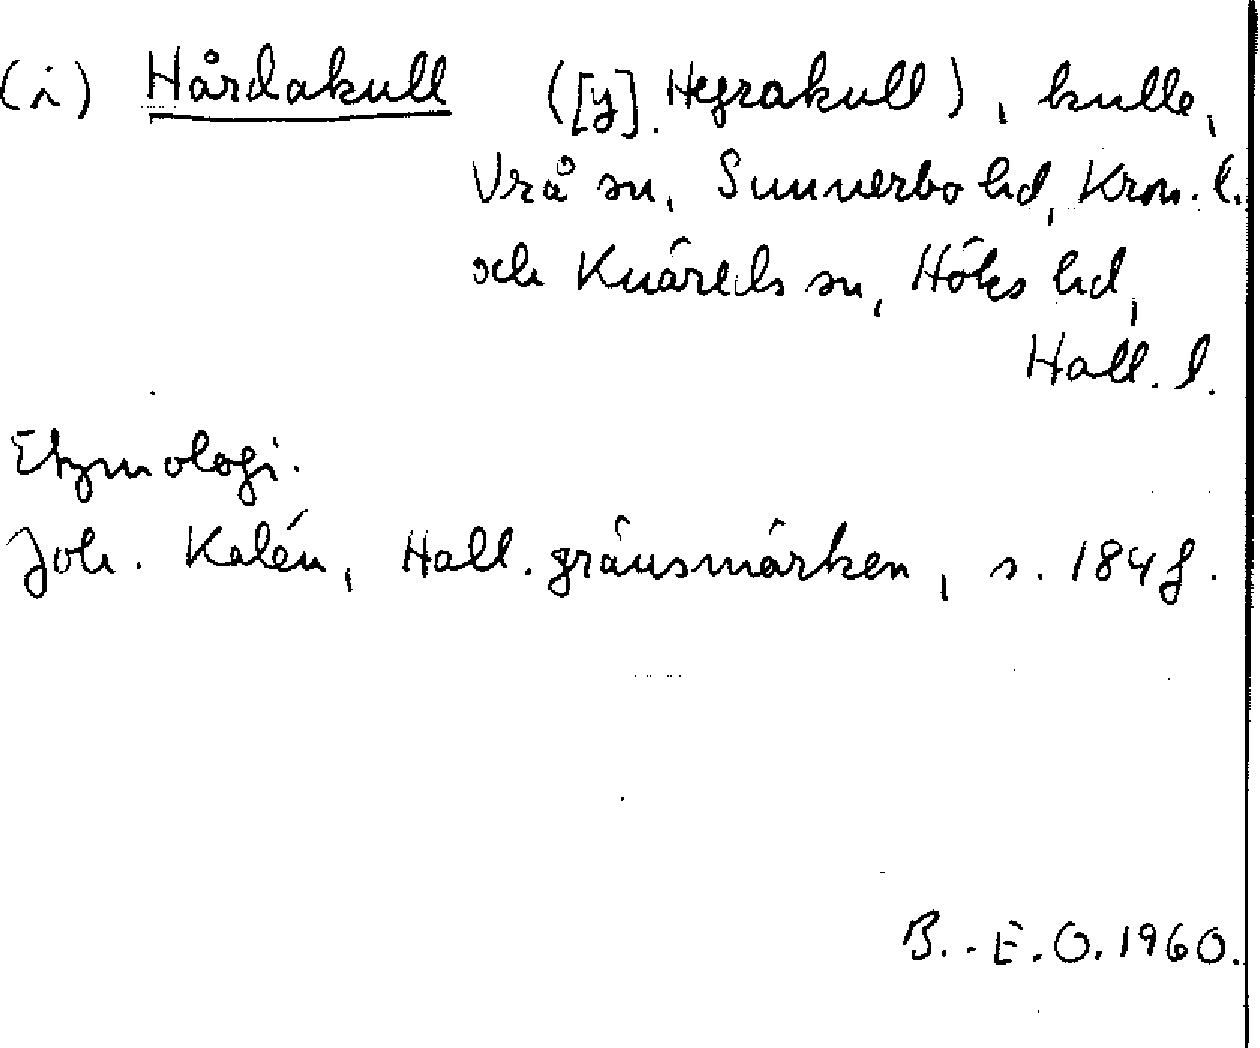 (i) Hårdakull ([y] Hegrakull), kulle,
Vrå sn, Sunnerbo hd, Kron. l.
och Knäreds sn, Höks hd,
Hall. l.
Etymologi.
Joh. Kalén, Hall. gränsmärken, s. 184 f.
B.-E.O. 1960.